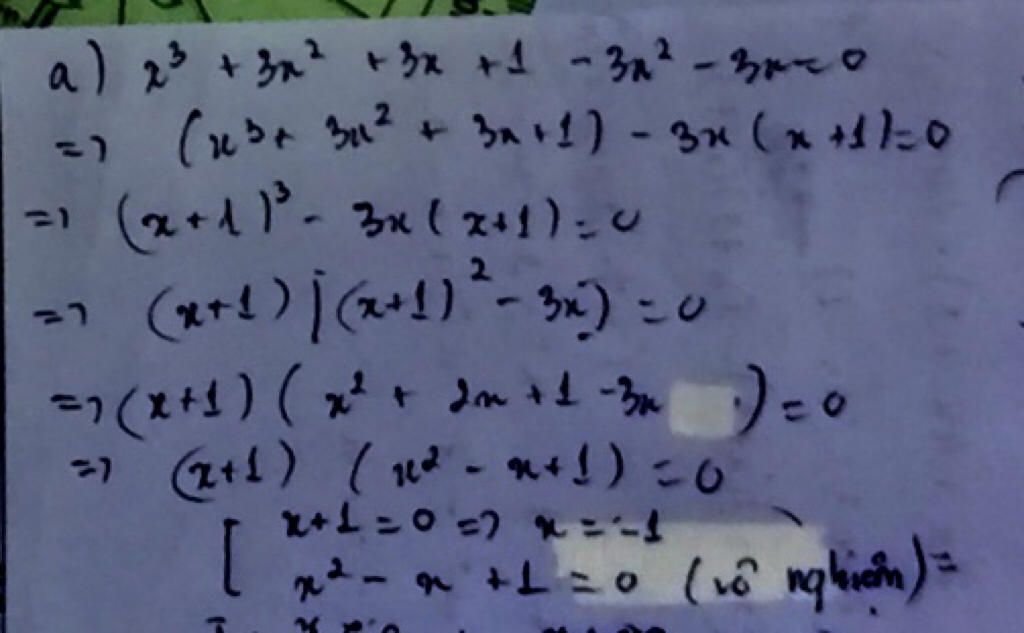 a) x³ + 3x² + 3x + 1 - 3x² - 3x = 0
=> (x³ + 3x² + 3x + 1) - 3x (x + 1) = 0
=> (x + 1)³ - 3x (x + 1) = 0
=> (x + 1) [(x + 1)² - 3x) = 0
=> (x + 1) (x² + 2x + 1 - 3x ) = 0
=> (x + 1) (x² - x + 1) = 0
[ x + 1 = 0 => x = -1
x² - x + 1 = 0 (vô nghiệm) =